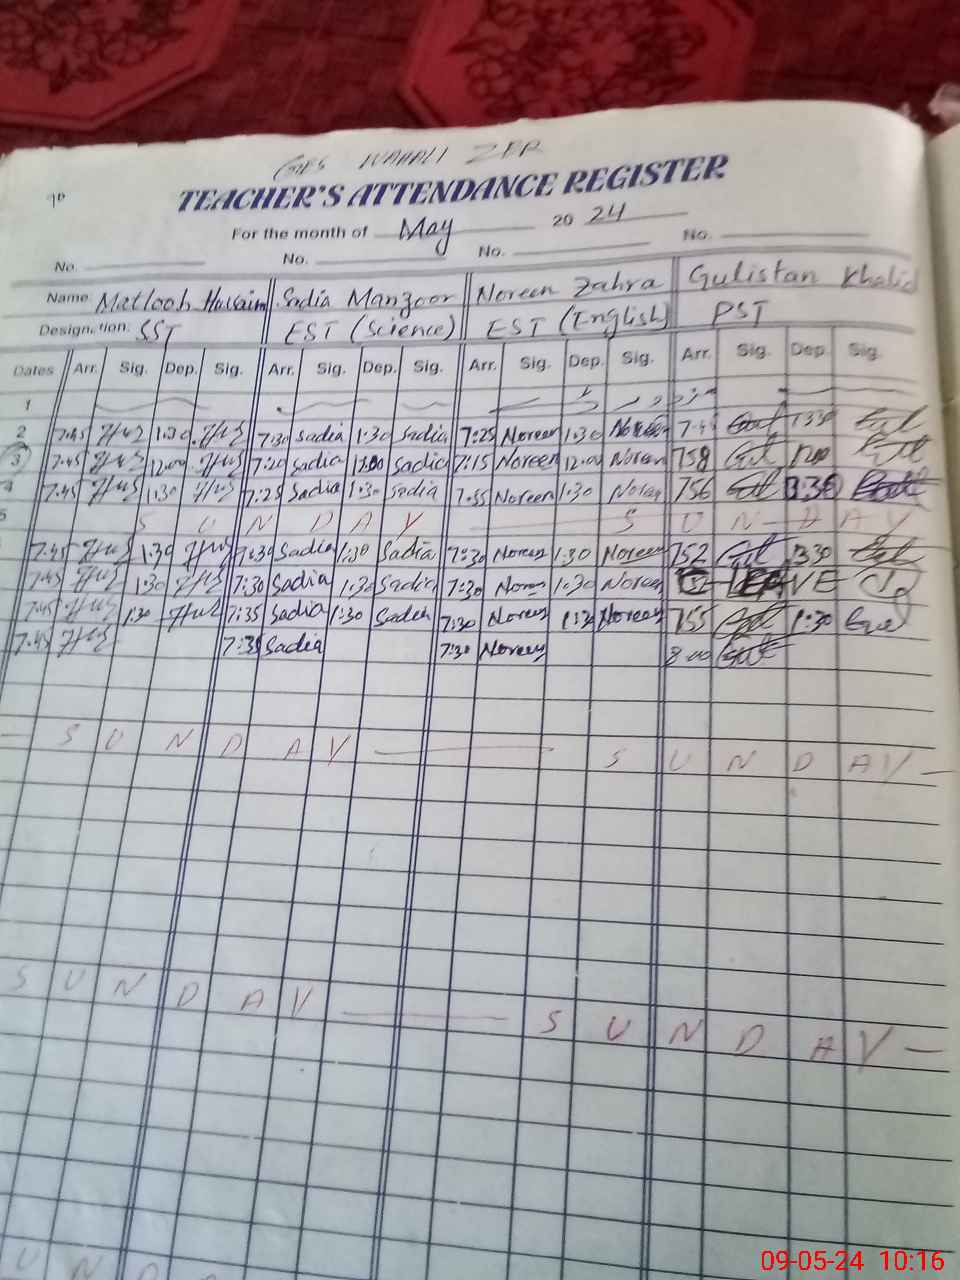 GES WAHALI ZER
TEACHER'S ATTENDANCE REGISTER
For the month of May 2024
No. No. No. No.
Name: Matloob Hussain Sadia Manzoor Noreen Zahra Gulistan Khalid
Designation: SST EST (Science) EST (English) PST
Dates Arr. Sig. Dep. Sig. Arr. Sig. Dep. Sig. Arr. Sig. Dep. Sig. Arr. Sig. Dep. Sig.
1
2 7:45 1:30 7:30 Sadia 1:30 Sadia 7:25 Noreen 1:30 Noreen
3 7:45 12:00 7:20 Sadia 12:00 Sadia 7:15 Noreen 12:00 Noreen 758
4 7:45 1:30 7:25 Sadia 1:30 Sadia 7:55 Noreen 1:30 Noreen 756 1:30
5 S U N D A Y S U N D A Y
7:45 1:30 7:30 Sadia 1:30 Sadia 7:30 Noreen 1:30 Noreen 752 1330
7:45 1:30 7:30 Sadia 1:30 Sadia 7:30 Noreen 1:30 Noreen LEAVE
7:45 1:30 7:35 Sadia 1:30 Sadia 7:30 Noreen 1:30 Noreen 755 1:30
7:45 7:35 Sadia 7:30 Noreen 8:00
S U N D A Y S U N D A Y
S U N D A Y S U N D A Y
U N D
09-05-24 10:16